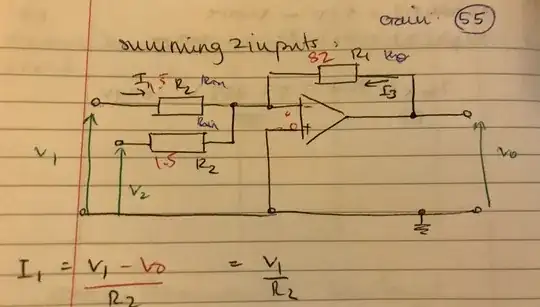 Gain: 55
summing 2 inputs:
82 R1
I1 1.5 R2
I3
V1
1.5 R2
V2
V0
I1 = V1 - V0 / R2 = V1 / R2